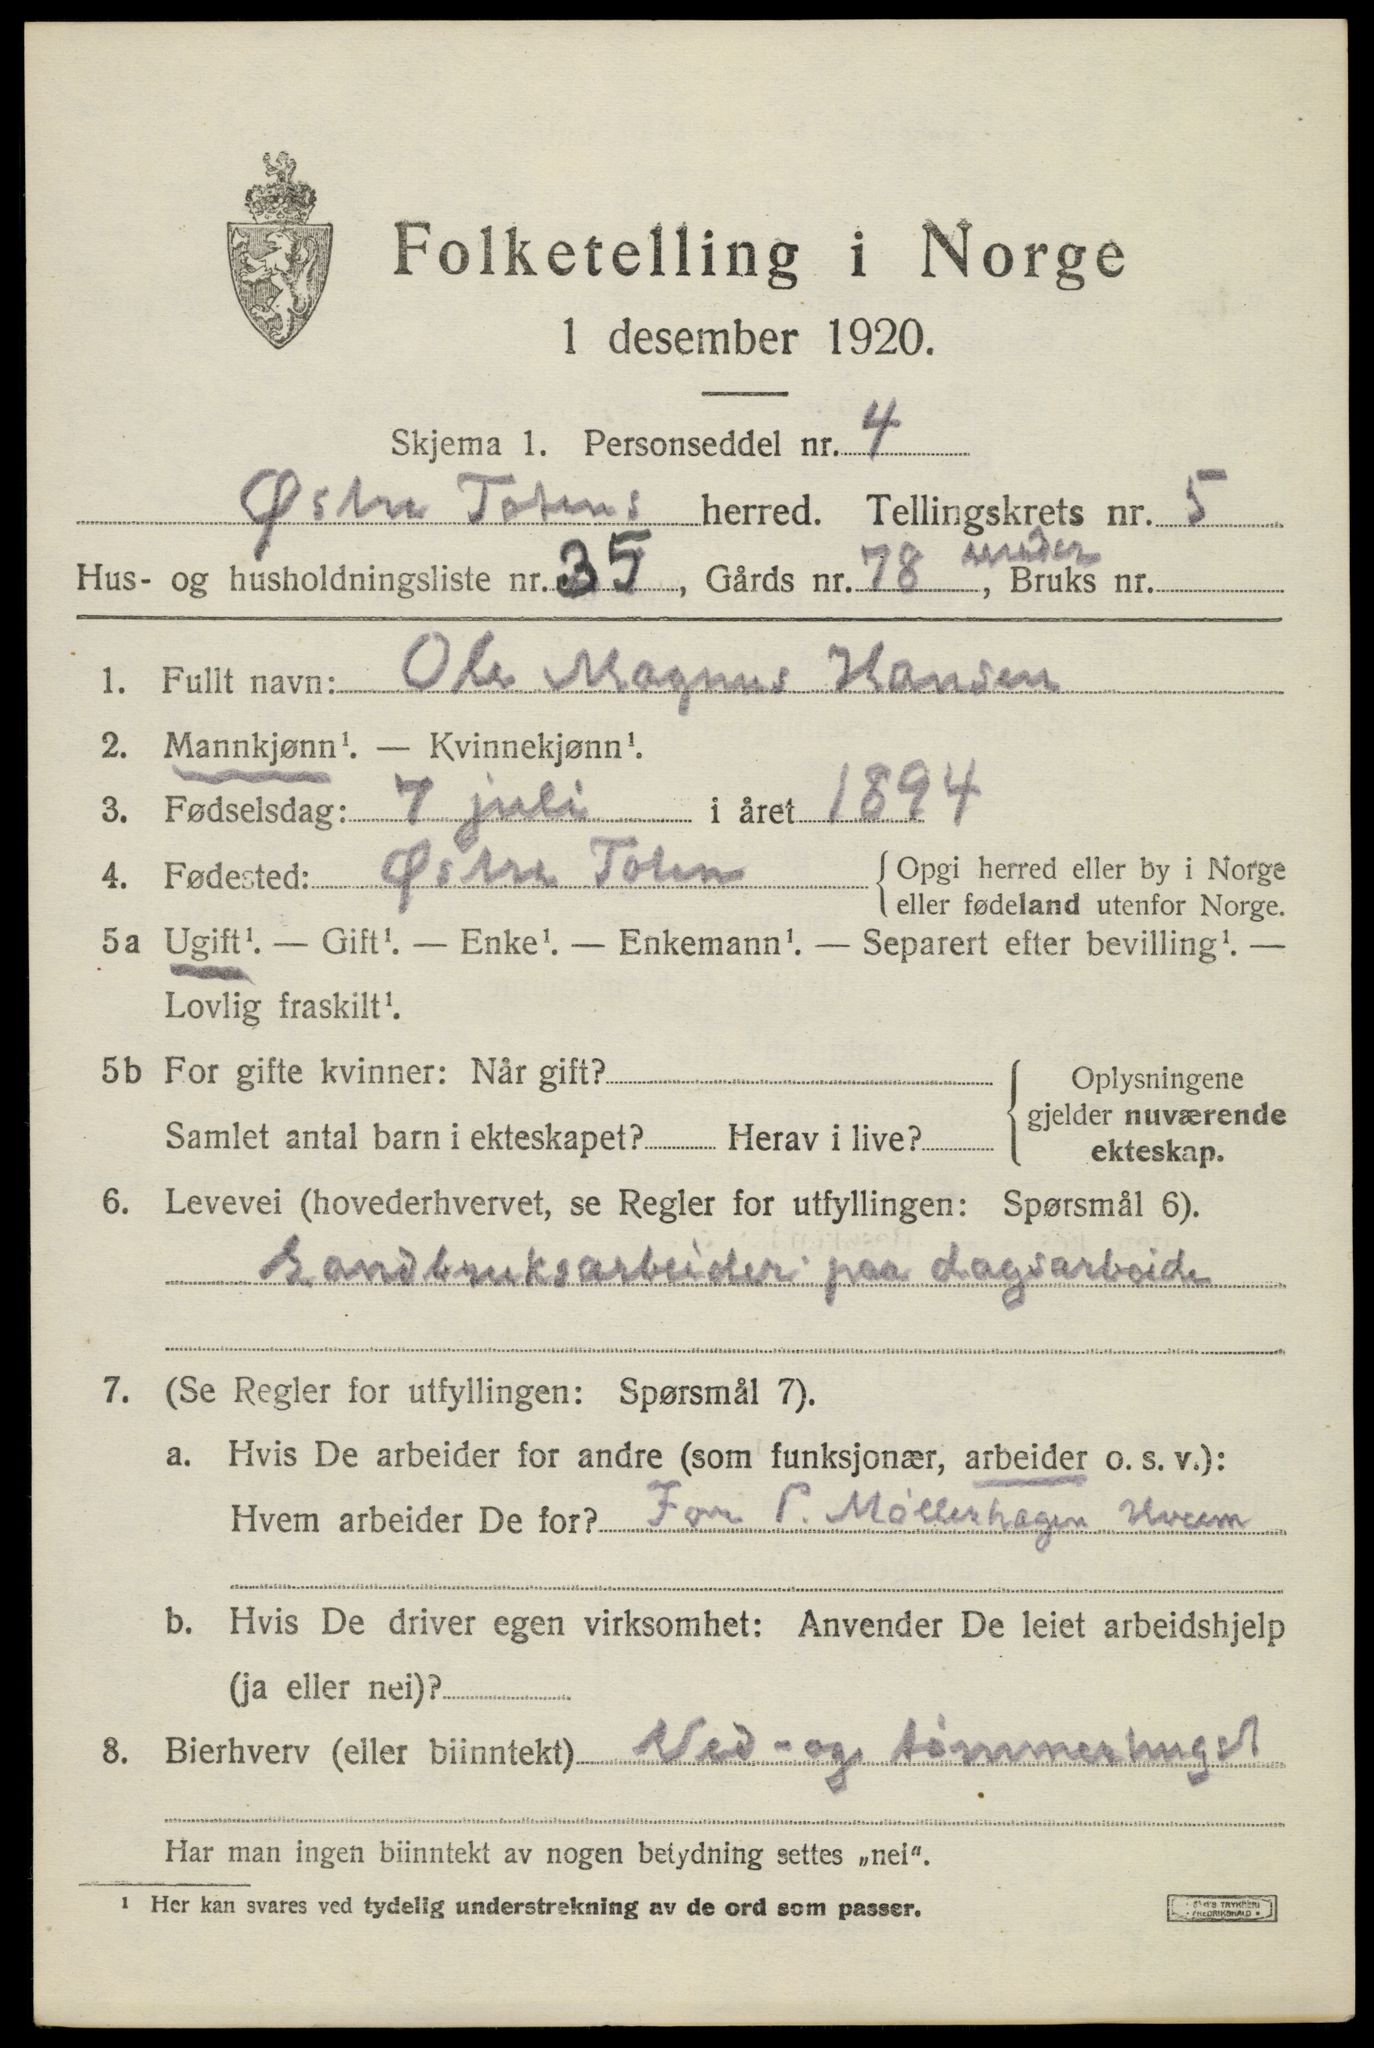 Folketelling i Norge
1 desember 1920.
Skjema 1. Personseddel nr. 4
Østre Totens herred. Tellingskrets nr. 5
Hus- og husholdningsliste nr. 35, Gårds nr. 78 under, Bruks nr.
1. Fullt navn: Ole Magnus Hansen
2. Mannkjønn¹. — Kvinnekjønn¹.
3. Fødselsdag: 7 juli i året 1894
4. Fødested: Østre Toten {Opgi herred eller by i Norge
eller fødeland utenfor Norge.
5a Ugift¹. — Gift¹. — Enke¹. — Enkemann¹. — Separert efter bevilling¹. —
Lovlig fraskilt¹.
5b For gifte kvinner: Når gift? { Oplysningene
gjelder nuværende
Samlet antal barn i ekteskapet? Herav i live?
ekteskap.
6. Levevei (hovederhvervet, se Regler for utfyllingen: Spørsmål 6).
Landbruksarbeider paa dagsarbeide
7. (Se Regler for utfyllingen: Spørsmål 7).
a. Hvis De arbeider for andre (som funksjonær, arbeider o. s. v.):
Hvem arbeider De for? For P. Møllerhagen Hveem
b. Hvis De driver egen virksomhet: Anvender De leiet arbeidshjelp
(ja eller nei)?
8. Bierhverv (eller biinntekt) Ved-og tømmerhugst
Har man ingen biinntekt av nogen betydning settes „nei“.
¹ Her kan svares ved tydelig understrekning av de ord som passer.
TRYKKERI
FREDRIKSHALD